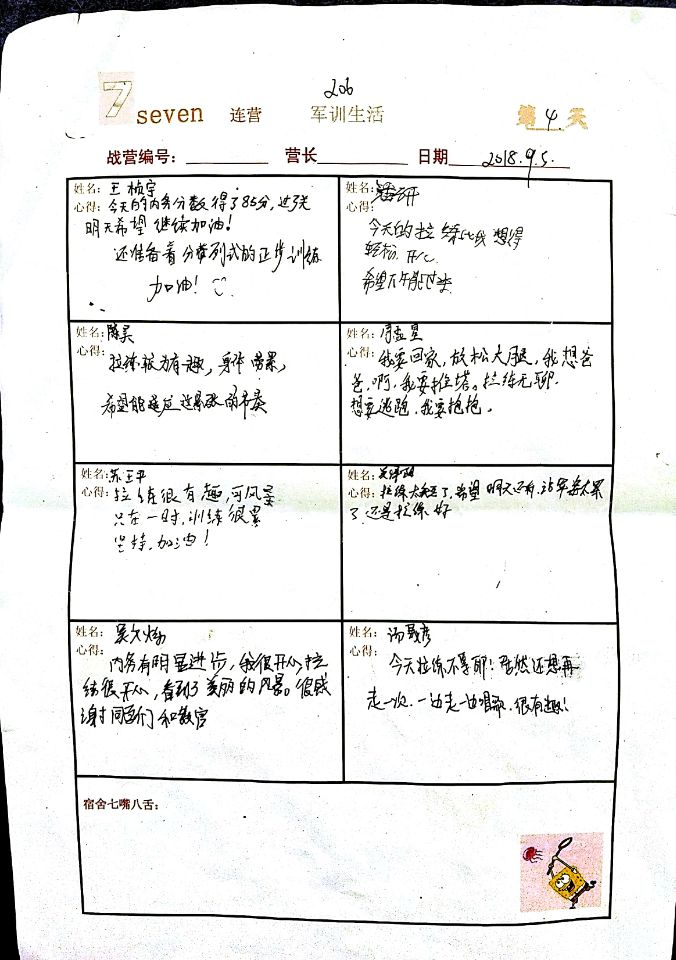 206
7 seven 连营 军训生活 第 4 天
战营编号: 营长 日期 2018.9.5.
姓名: 王桢宇
心得: 今天的内务分数得了85分,
明天希望继续加油!
还准备着分列式的正步训练
加油!
姓名:
心得:
今天的拉练比我想得
轻松
希望
姓名: 陈昊
心得: 拉练极为有趣,身体劳累,
希望能适应这紧张的节奏
姓名:
心得: 我要回家,放松大腿,我想爸
爸,啊,我要拉练无聊.
想要逃跑,我要抱抱。
姓名: 苏正平
心得: 拉练很有趣,可风景
只在一时,训练很累
坚持,加油!
姓名:
心得: 拉练太了,希望明天还有,站军姿太累
了,还是拉练好
姓名:
心得: 内务有明显进步,我很开心,拉
练很开心,看到了美丽的风景。很感
谢同学们和教官
姓名:
心得: 今天拉练不累耶!居然还想再
走一次.一边走一边唱歌.很有趣!
宿舍七嘴八舌: